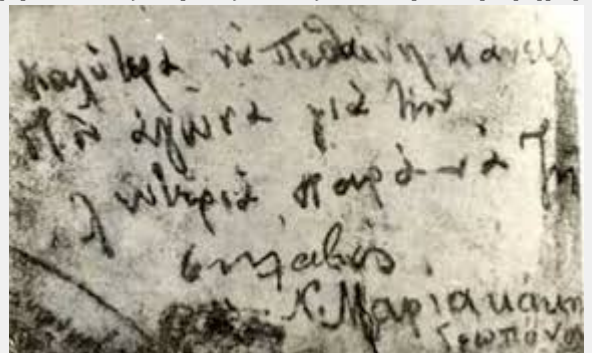 Καλύτερα νὰ πεθαίνη κανείς
στὸν ἀγῶνα γιὰ τὴν
λευτεριὰ παρὰ νὰ ζῆ
σκλάβος.
Ν. Μαριακάκη
Γεωπόνος